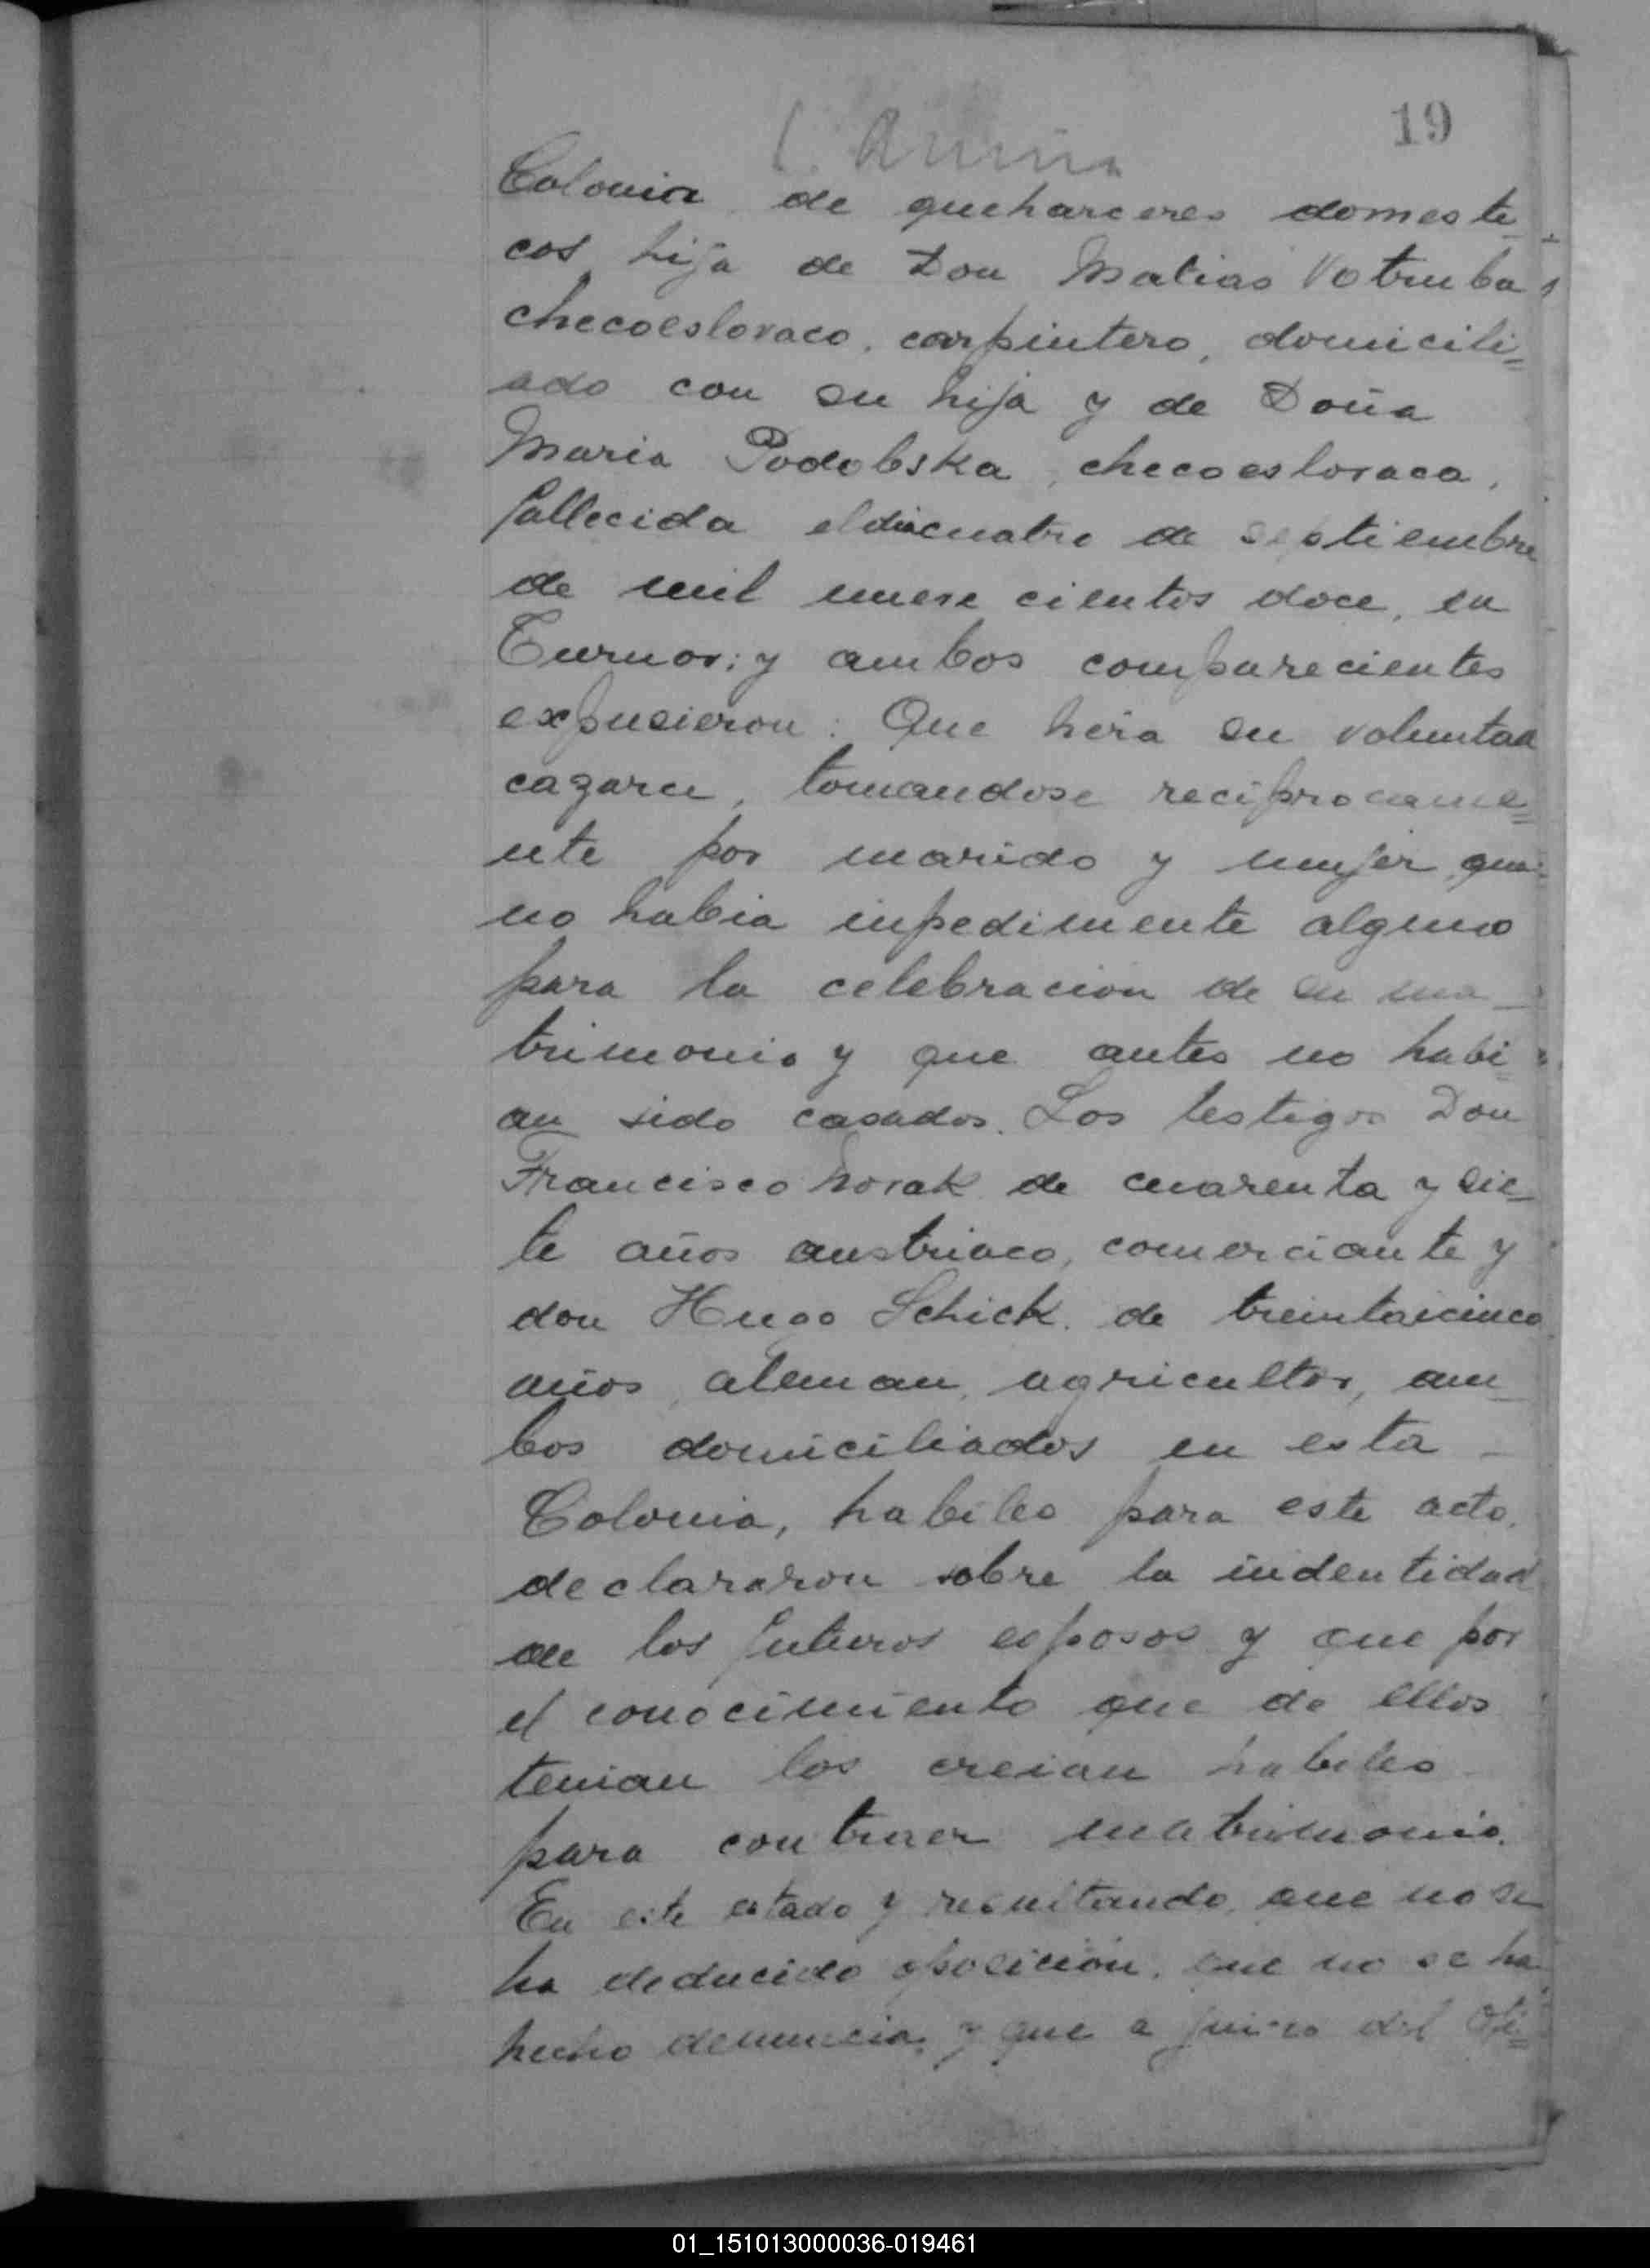 19
Colonia de queharceres domesti
cos, hija de Don Matias Votruba
checoeslovaco, carpintero, domicili=
ado con su hija y de Doña
Maria Podobska, checoeslovaca,
fallecida el dia cuatro de septiembre
de mil nueve cientos doce, en
Turnov; y ambos comparecientes
expusieron: Que hera su voluntad
cazarce, tomandose reciprocame=
nte por marido y mujer, que
no habia inpedimente alguno
para la celebracion de su ma_
trimonio y que antes no habi=
an sido casados. Los testigos Don
Francisco Novak de cuarenta y sie_
te años austriaco, comerciante y
don Hugo Schick de treintaicinco
años, aleman, agricultor, am_
bos domiciliados en esta _
Colonia, habiles para este acto,
declararon sobre la indentidad
de los futuros esposos y que por
el conocimiento que de ellos
tenian los creian habiles
para contraer matrimonio.
En este estado y resultando, que no se
ha deducido oposicion, que no se ha
hecho denuncia, y que a juicio del Ofi=
01_151013000036-019461